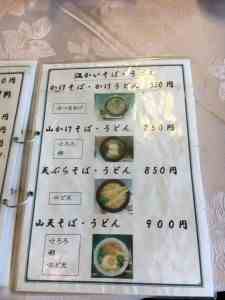 温かいそば・うどん
かけそば・かけうどん 550円
山かけそば・うどん 750円
とろろ
卵
天ぷらそば・うどん 850円
えび天
山天そば・うどん 900円
とろろ
卵
えび天